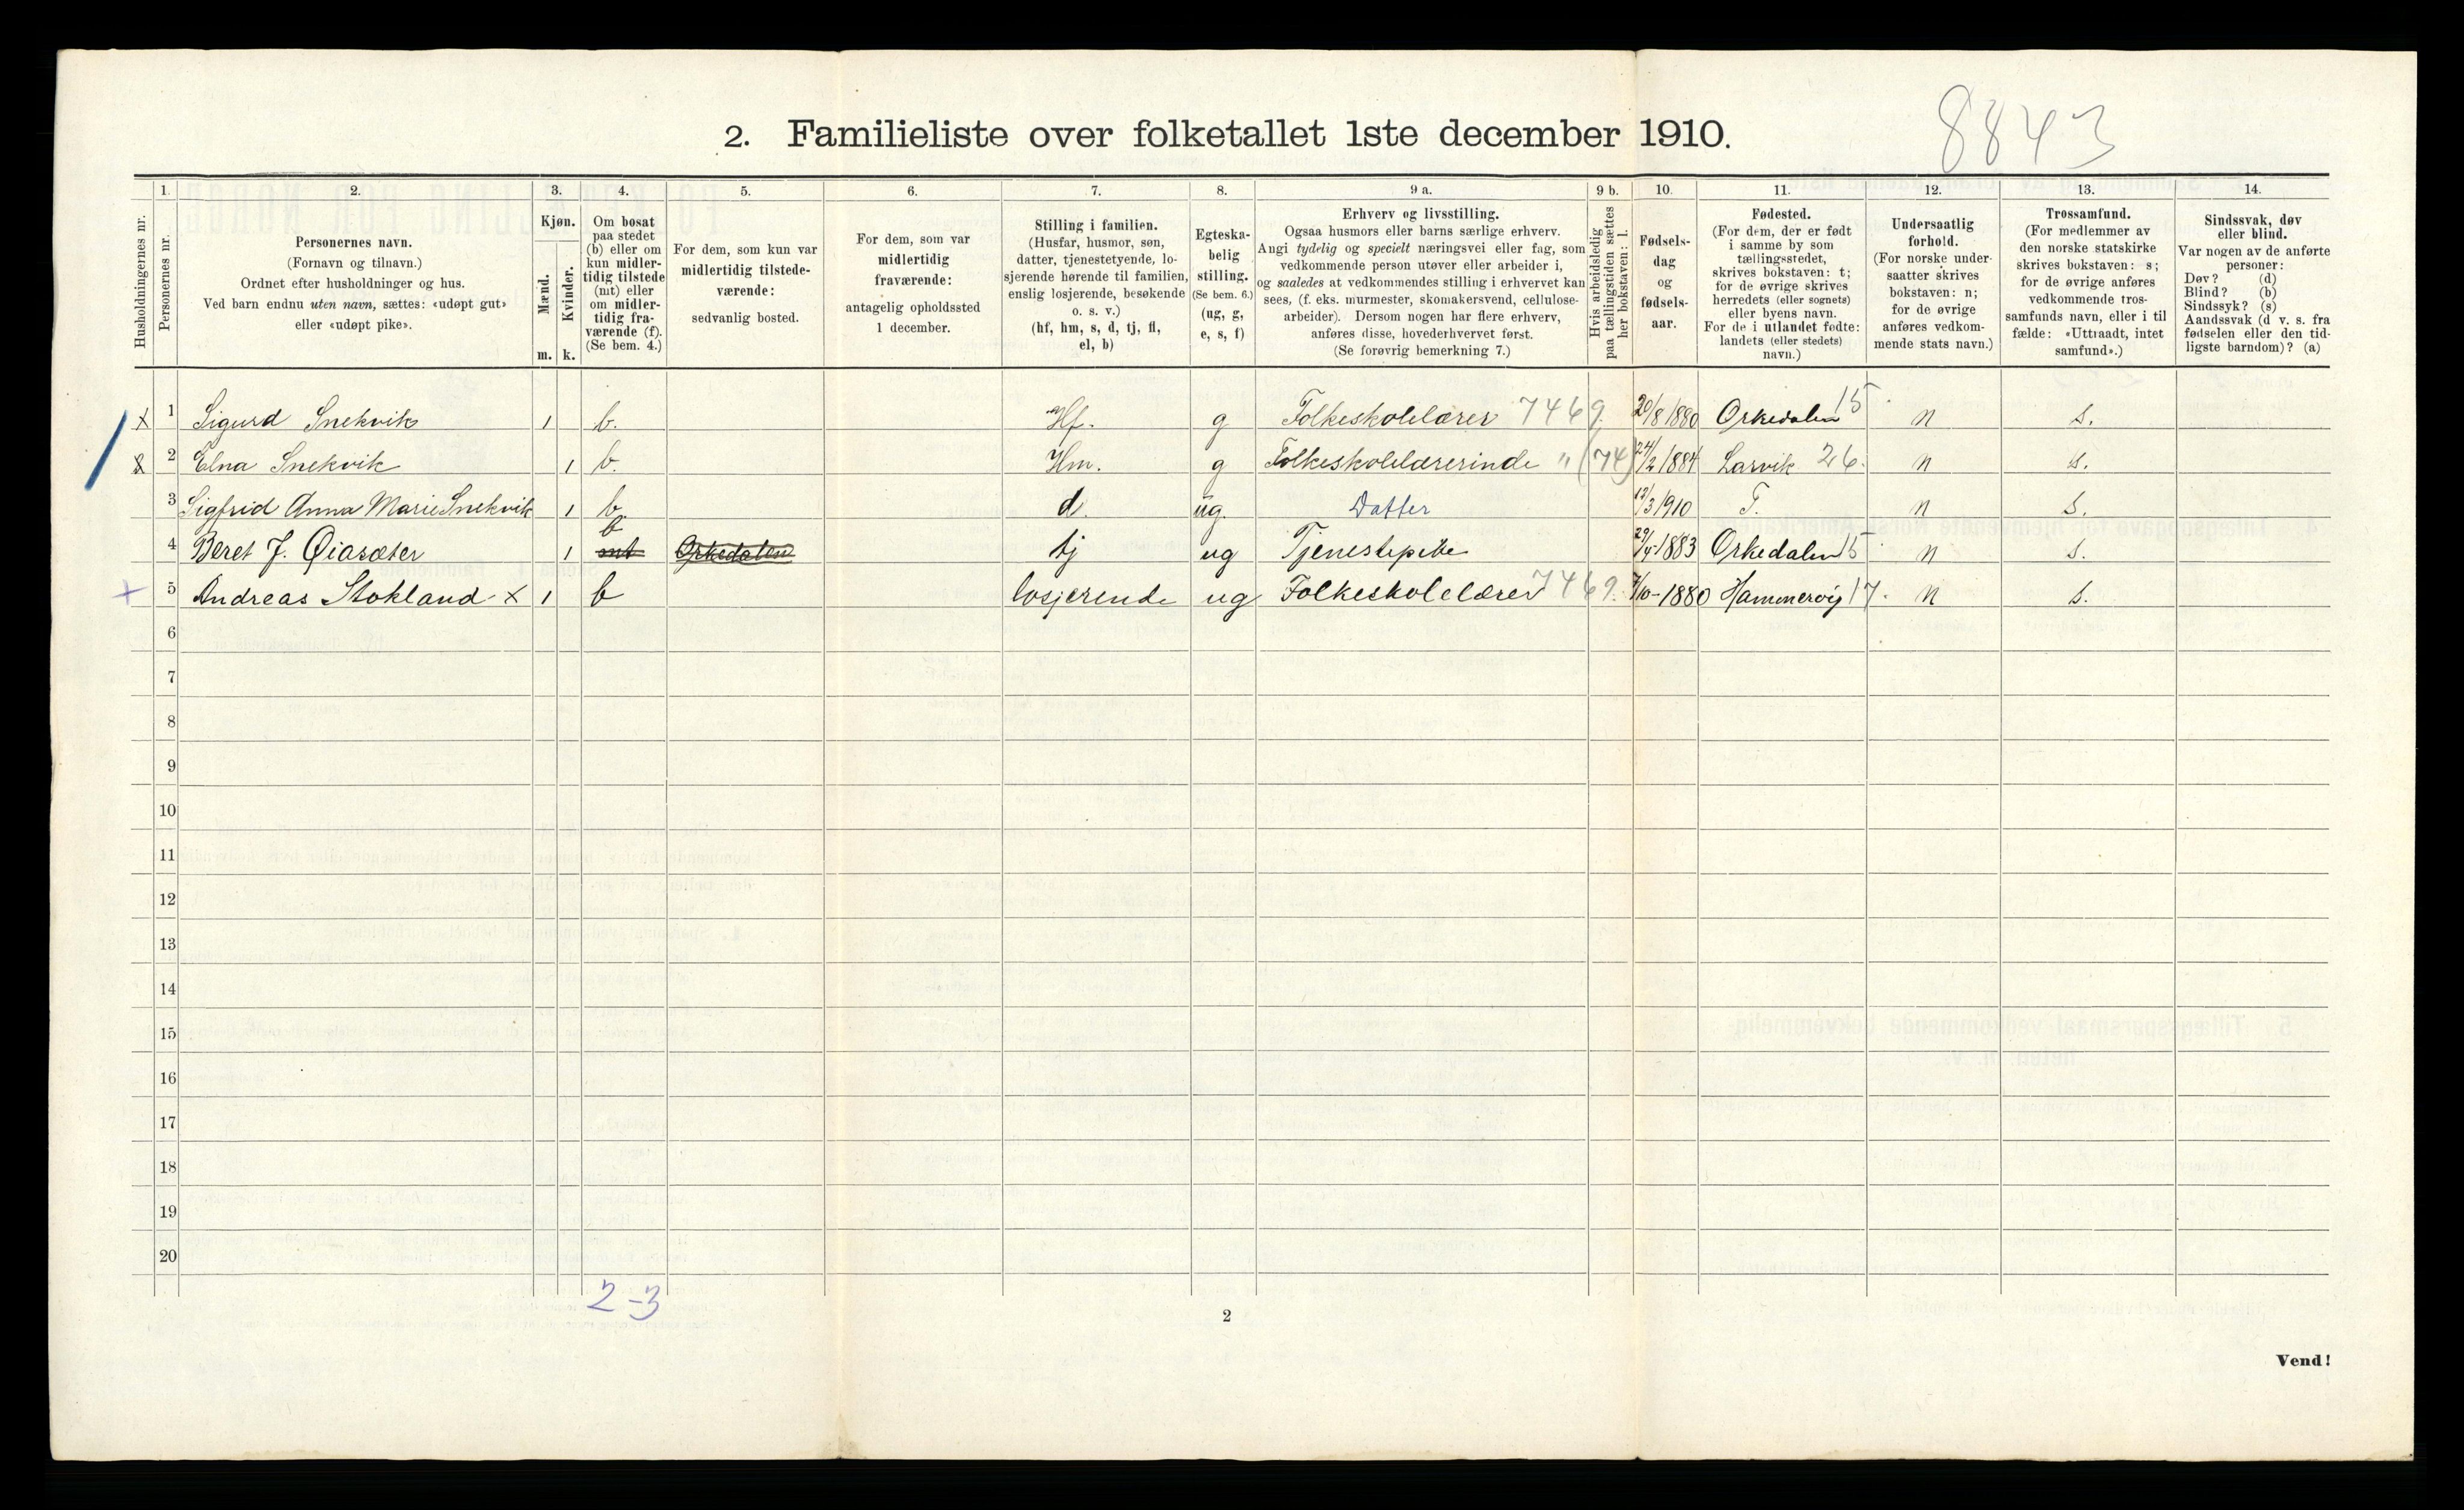 8843
2. Familieliste over folketallet 1ste december 1910.
Husholdningernes nr.
1.
Personernes nr.
2.
Personernes navn.
(Fornavn og tilnavn.)
Ordnet efter husholdninger og hus.
Ved barn endnu uten navn, sættes: «udøpt gut»
eller «udøpt pike».
3.
Kjøn.
Mænd.
Kvinder.
m. k.
4.
Om bosat
paa stedet
(b) eller om
kun midler-
tidig tilstede
(mt) eller
om midler-
tidig fra-
værende (f).
(Se bem. 4.)
5.
For dem, som kun var
midlertidig tilstede-
værende:
sedvanlig bosted.
6.
For dem, som var
midlertidig
fraværende:
antagelig opholdssted
1 december.
7.
Stilling i familien.
(Husfar, husmor, søn,
datter, tjenestetyende, lo-
sjerende hørende til familien,
enslig losjerende, besøkende
o. s. v.)
(hf, hm, s, d, tj, fl,
el, b)
8.
Egteska-
belig
stilling.
(Se bem. 6.)
(ug, g,
e, s, f)
9 a.
Erhverv og livsstilling.
Ogsaa husmors eller barns særlige erhverv.
Angi tydelig og specielt næringsvei eller fag, som
vedkommende person utøver eller arbeider i,
og saaledes at vedkommendes stilling i erhvervet kan
sees, (f. eks. murmester, skomakersvend, cellulose-
arbeider). Dersom nogen har flere erhverv,
anføres disse, hovederhvervet først.
(Se forøvrig bemerkning 7.)
9 b.
Hvis arbeidsledig
paa tællingstiden sættes
her bokstaven: l.
10.
Fødsels-
dag
og
fødsels-
aar.
11.
Fødested.
(For dem, der er født
i samme by som
tællingsstedet,
skrives bokstaven: t;
for de øvrige skrives
herredets (eller sognets)
eller byens navn.
For de i utlandet fødte:
landets (eller stedets)
navn.)
12.
Undersaatlig
forhold.
(For norske under-
saatter skrives
bokstaven: n;
for de øvrige
anføres vedkom-
mende stats navn.)
13.
Trossamfund.
(For medlemmer av
den norske statskirke
skrives bokstaven: s;
for de øvrige anføres
vedkommende tros-
samfunds navn, eller i til
fælde: «Uttraadt, intet
samfund».)
14.
Sindssvak, døv
eller blind.
Var nogen av de anførte
personer:
Døv? (d)
Blind? (b)
Sindssyk? (s)
Aandssvak (d v. s. fra
fødselen eller den tid-
ligste barndom)? (a)
x 1 Sigurd Snekvik 1 b. Hf. g Folkeskolelærer 7469. 20/8 1880 Orkedalen 15 n s.
2 Elna Snekvik 1 b. Hm. g Folkeskolelærerinde " (74) 24/2 1884 Larvik 26. n s.
3 Sigfrid Anna Marie Snekvik 1 b. d. ug. Datter 12/3 1910 T. n s.
4 Beret J. Øiasæter 1 b mt Orkedalen tj ug Tjenestepike 29/4 1883 Orkedalen 15 n s.
+ 5 Andreas Stokland x 1 b losjerende ug Folkeskolelærer 7469. 7/10-1880 Hammervig 17. n s.
6
7
8
9
10
11
12
13
14
15
16
17
18
19
20
2-3
2
Vend!